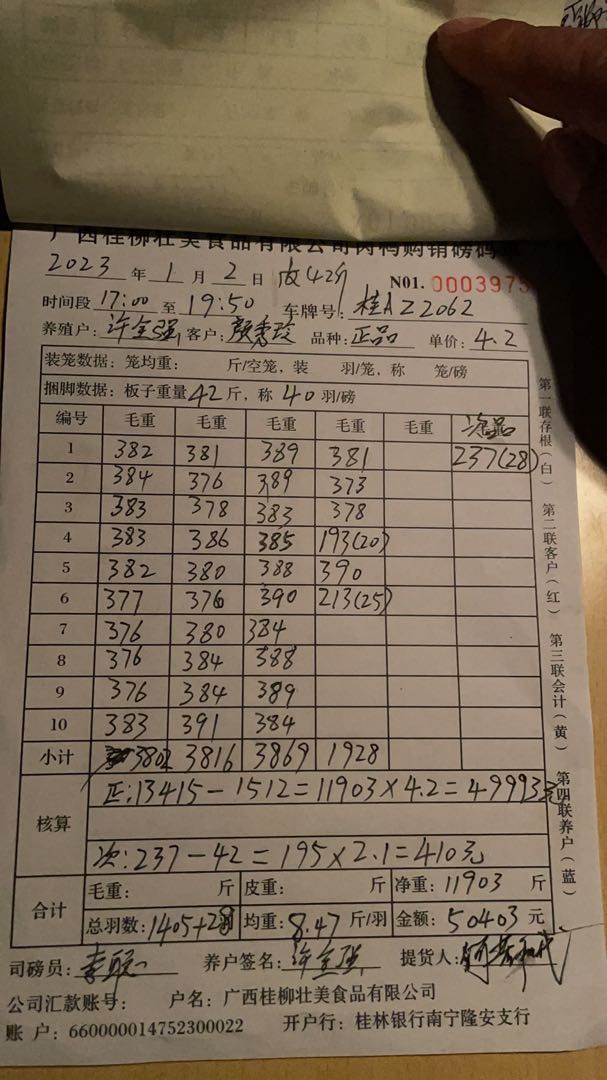 广西桂柳壮美食品有限公司肉鸭购销磅码单
2023 年 1 月 2 日 皮42斤 N01. 0003975
时间段 17:00 至 19:50 车牌号: 桂AZ2062
养殖户: 许全强 客户: 颜秀玲 品种: 正品 单价: 4.2
装笼数据: 笼均重: 斤/空笼, 装 羽/笼, 称 笼/磅
捆脚数据: 板子重量 42 斤, 称 40 羽/磅
编号 毛重 毛重 毛重 毛重 毛重 次品
1 382 381 389 381 237(28)
2 384 376 389 373
3 383 378 383 378
4 383 386 385 193(20)
5 382 380 388 390
6 377 376 390 213(25)
7 376 380 384
8 376 384 388
9 376 384 389
10 383 391 384
小计 3802 3816 3869 1928
核算 正:13415-1512=11903×4.2=49993元
次:237-42=195×2.1=410元
合计 毛重: 斤 皮重: 斤 净重: 11903 斤
总羽数: 1405+28 均重: 8.47 斤/羽 金额: 50403 元
司磅员: 养户签名: 许全强 提货人:
公司汇款账号: 户名: 广西桂柳壮美食品有限公司
账 户: 660000014752300022 开户行: 桂林银行南宁隆安支行
第一联存根(白) 第二联客户(红) 第三联会计(黄) 第四联养户(蓝)